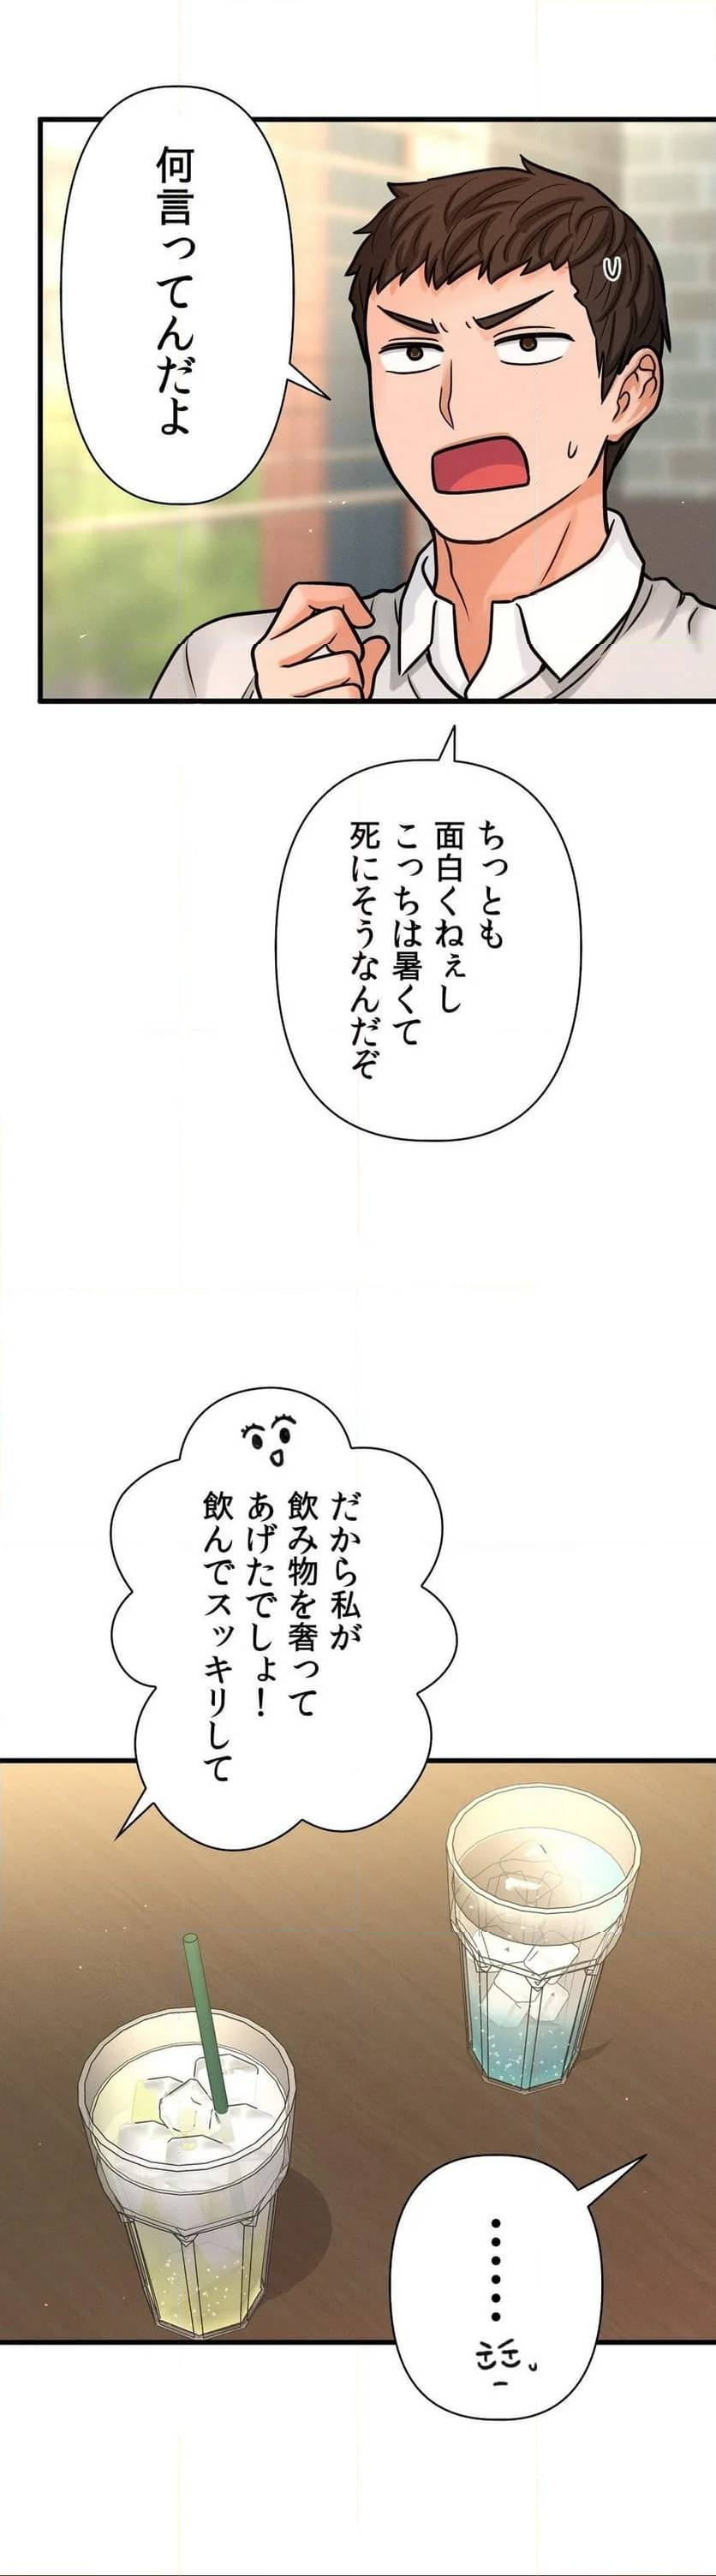 何言ってんだよ
ちっとも
面白くねぇし
こっちは暑くて
死にそうなんだぞ
だから私が
飲み物を奢って
あげたでしょ！
飲んでスッキリして
……